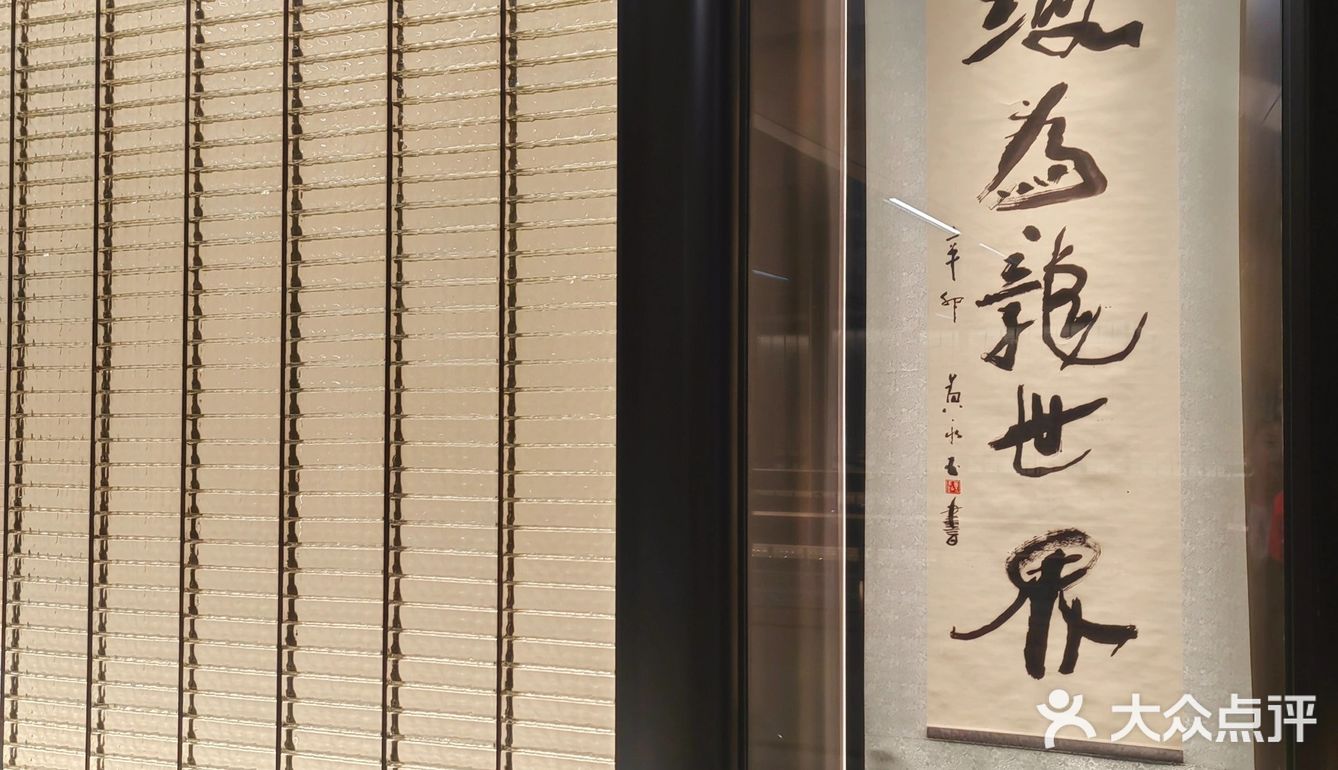 為龍世界
辛卯 黄永玉 書
大众点评